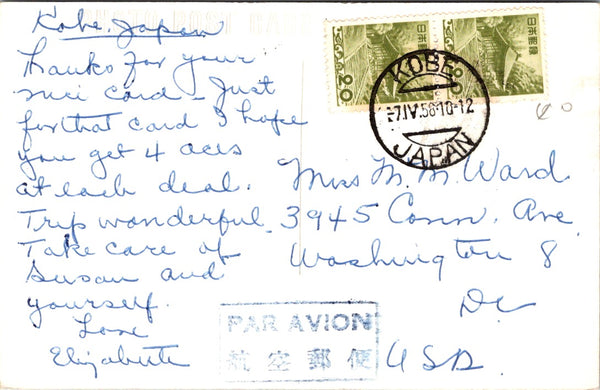 Kobe, Japan
Thanks for your
nice card - Just
for that card I hope
you get 4 aces
at each deal.
Trip wonderful.
Take care of
Susan and
yourself.
Love
Elizabeth
日本郵便
20
日本郵便
20
KOBE
-7.IV.58.10-12
JAPAN
Miss M. M. Ward
3945 Conn. Ave
Washington 8
DC
USA
PAR AVION
航空郵便